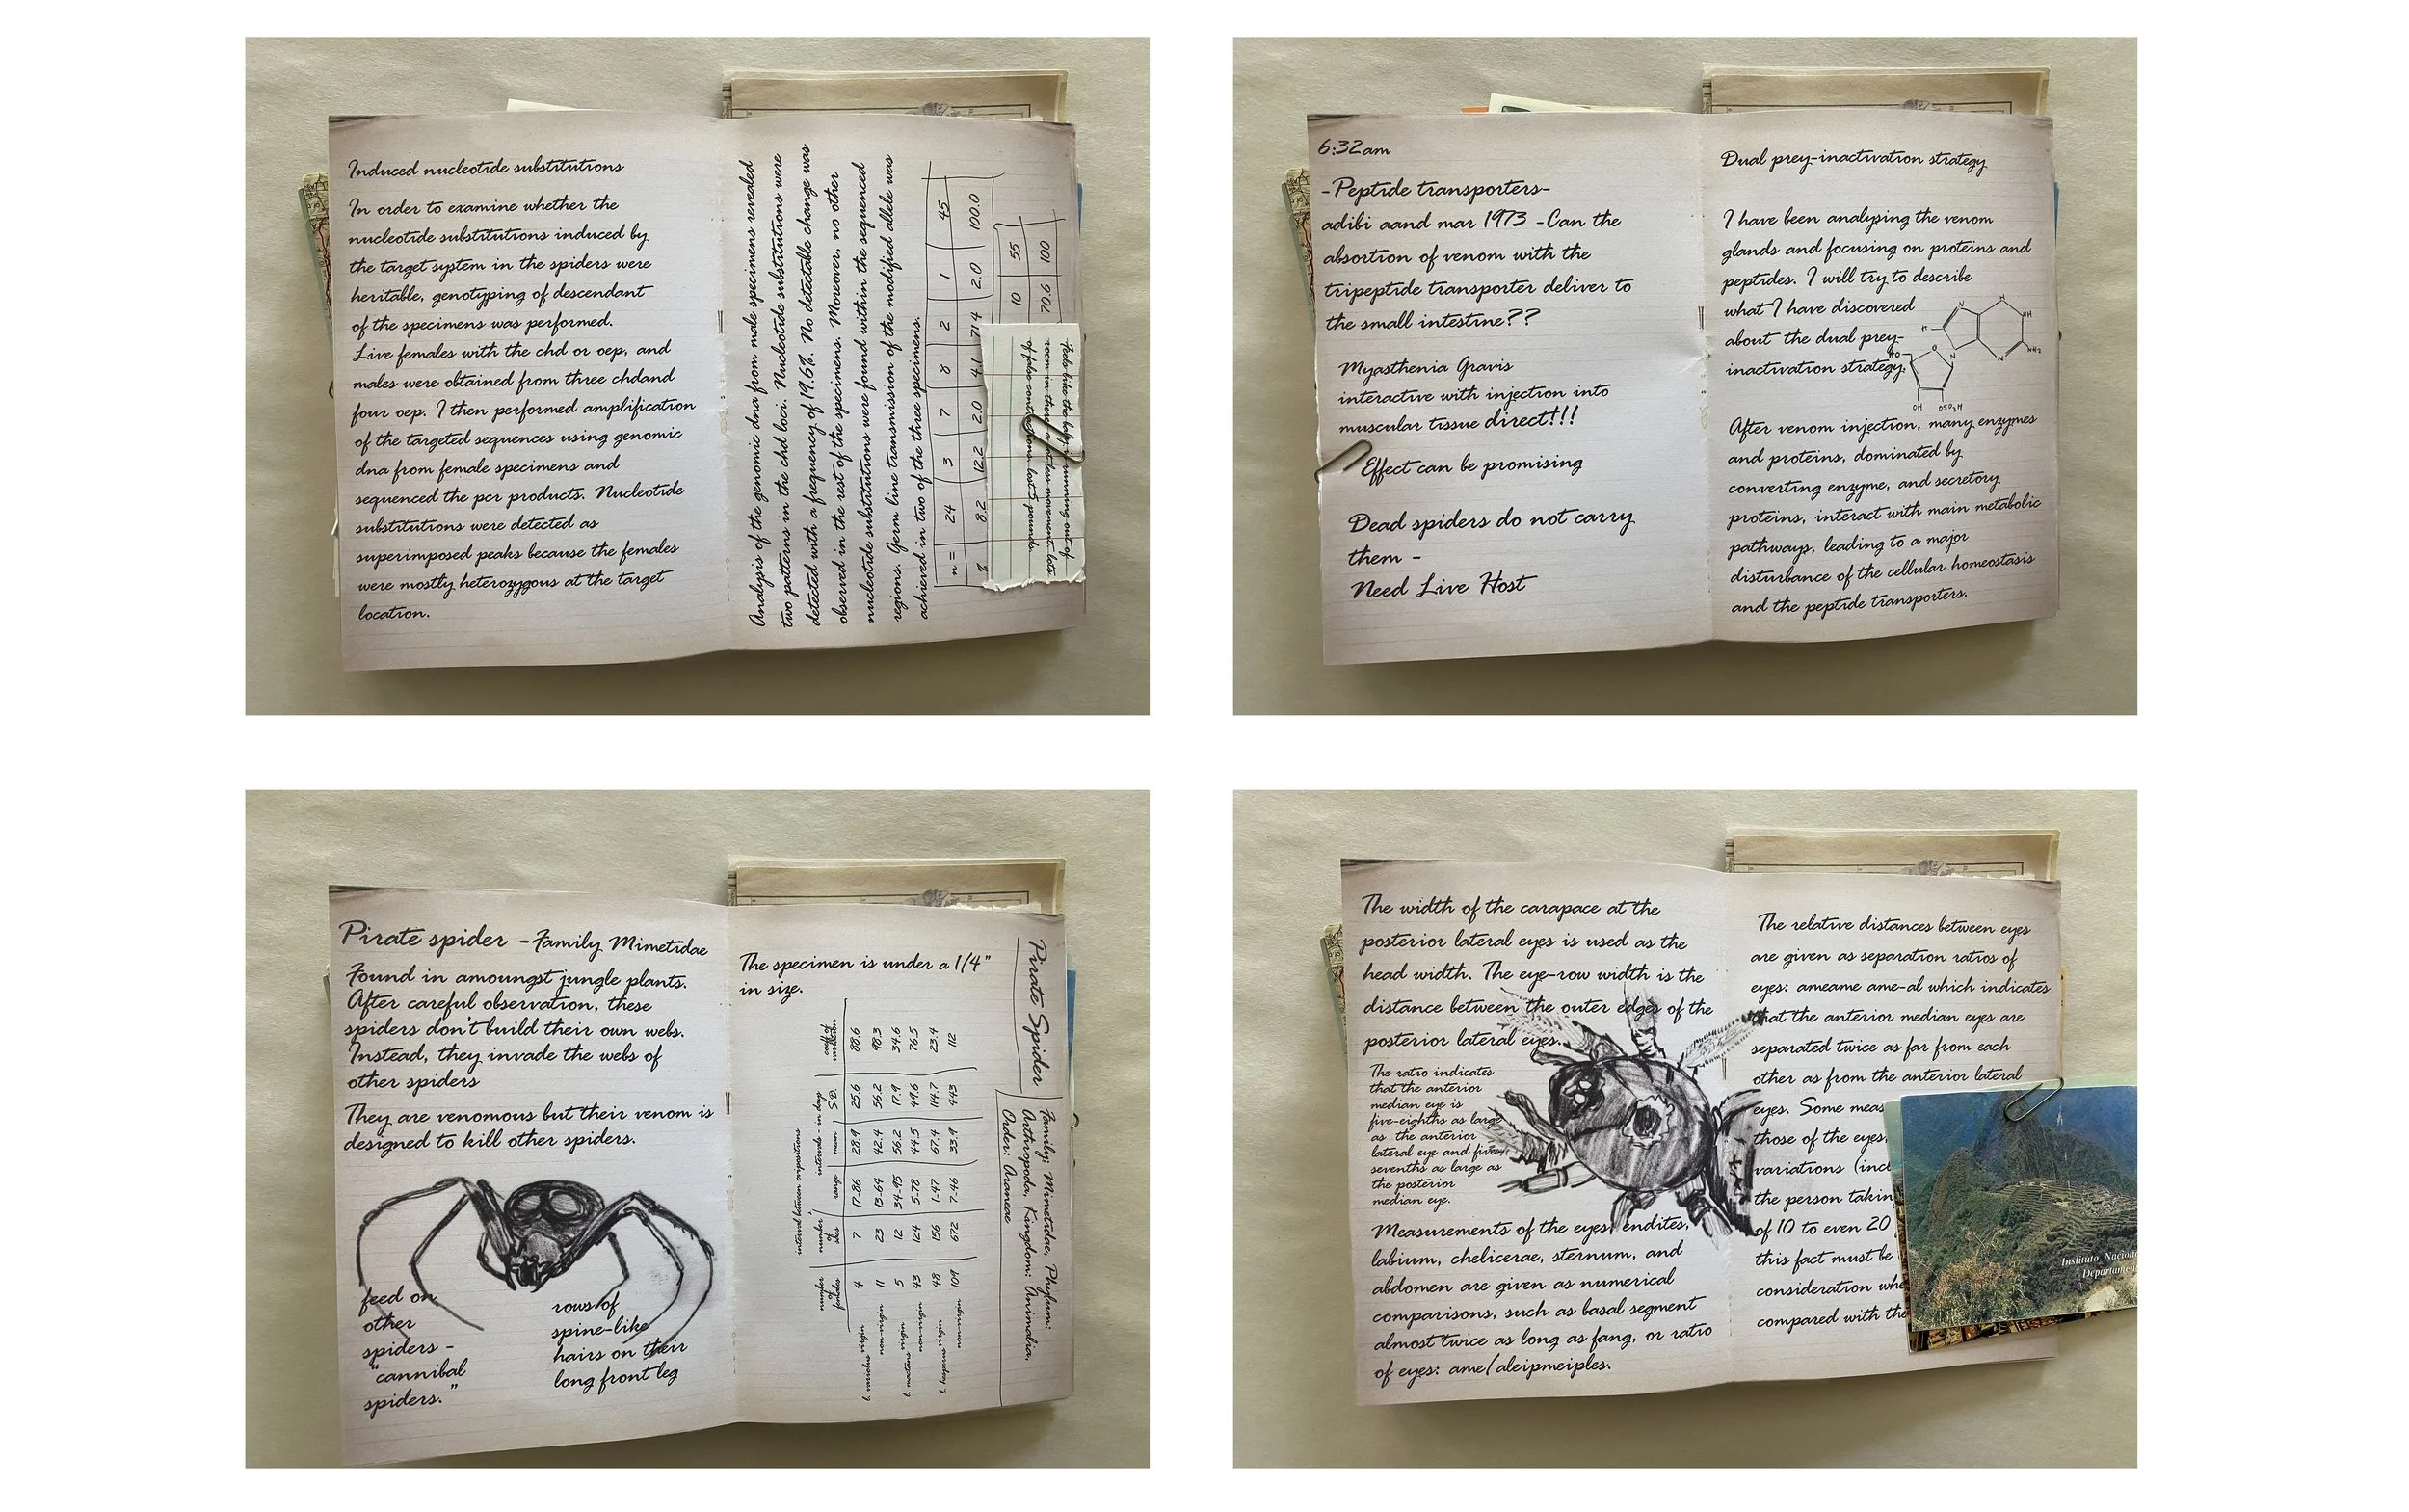 Induced nucleotide substitutions
In order to examine whether the
nucleotide substitutions induced by
the target system in the spiders were
heritable, genotyping of descendant
of the specimens was performed.
Live females with the chd or oep, and
males were obtained from three chdand
four oep. I then performed amplification
of the targeted sequences using genomic
dna from female specimens and
sequenced the pcr products. Nucleotide
substitutions were detected as
superimposed peaks because the females
were mostly heterozygous at the target
location.
Analysis of the genomic dna from male specimens revealed
two patterns in the chd loci. Nucleotide substitutions were
detected with a frequency of 19.6%. No detectable change was
observed in the rest of the specimens. Moreover, no other
nucleotide substitutions were found within the sequenced
regions. Germ line transmission of the modified allele was
achieved in two of the three specimens.
n = 24 3 7 8 2 1 45
% 8.2 12.2 2.0 4.1 71.4 2.0 100.0
10 55
70.9 100
6:32am
-Peptide transporters-
adibi aand mar 1973 -Can the
absortion of venom with the
tripeptide transporter deliver to
the small intestine??
Myasthenia Gravis
interactive with injection into
muscular tissue direct!!!
Effect can be promising
Dead spiders do not carry
them -
Need Live Host
Dual prey-inactivation strategy
I have been analysing the venom
glands and focusing on proteins and
peptides. I will try to describe
what I have discovered
about the dual prey-
inactivation strategy.
HO
O
N
N
N
NH
NH2
OH OSO3H
After venom injection, many enzymes
and proteins, dominated by
converting enzyme, and secretory
proteins, interact with main metabolic
pathways, leading to a major
disturbance of the cellular homeostasis
and the peptide transporters.
Pirate spider - Family Mimetidae
Found in amoungst jungle plants.
After careful observation, these
spiders don't build their own webs.
Instead, they invade the webs of
other spiders
They are venomous but their venom is
designed to kill other spiders.
feed on
other
spiders -
"cannibal
spiders."
rows of
spine-like
hairs on their
long front leg
The specimen is under a 1/4"
in size.
interval between ovipositions
intervals - in days
number of females number of obs range mean S.D. coeff of variation
4 7 17-86 28.9 25.6 88.6
non-virgin 11 23 13-64 42.4 56.2 98.3
virgin 5 12 34-95 56.2 17.9 34.6
non-virgin 43 124 5.78 44.5 49.6 76.5
virgin 48 156 1.47 67.4 114.7 23.4
non-virgin 109 672 7.46 33.9 443 112
Pirate Spider
Family: Mimetidae, Phylum:
Arthropoda, Kingdom: Animalia,
Order: Araneae
The width of the carapace at the
posterior lateral eyes is used as the
head width. The eye-row width is the
distance between the outer edges of the
posterior lateral eyes.
The ratio indicates
that the anterior
median eye is
five-eighths as large
as the anterior
lateral eye and five-
sevenths as large as
the posterior
median eye.
Measurements of the eyes, endites,
labium, chelicerae, sternum, and
abdomen are given as numerical
comparisons, such as basal segment
almost twice as long as fang, or ratio
of eyes: ame/aleipmeiples.
The relative distances between eyes
are given as separation ratios of
eyes: ameame ame-al which indicates
that the anterior median eyes are
separated twice as far from each
other as from the anterior lateral
eyes. Some meas
those of the eyes,
variations (incl
the person takin
of 10 to even 20
this fact must be
consideration whe
compared with the
Instituto Nacion
Departamen